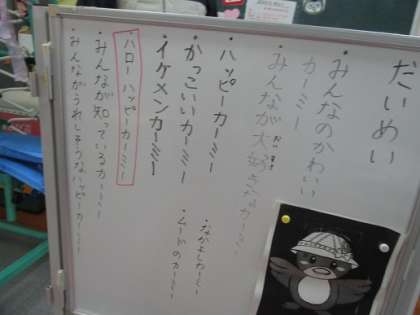 だいめい
・みんなのかわいい
カーミー
・みんなが大好きなカーミー
だいす
・ハッピーカーミー
・かっこいいカーミー
・イケメンカーミー
・ハローハッピーカーミー
・みんなが知っているカーミー
・みんながうれしそうなハッピーカーミー
・なかよしカーミー
・ムードのカーミー